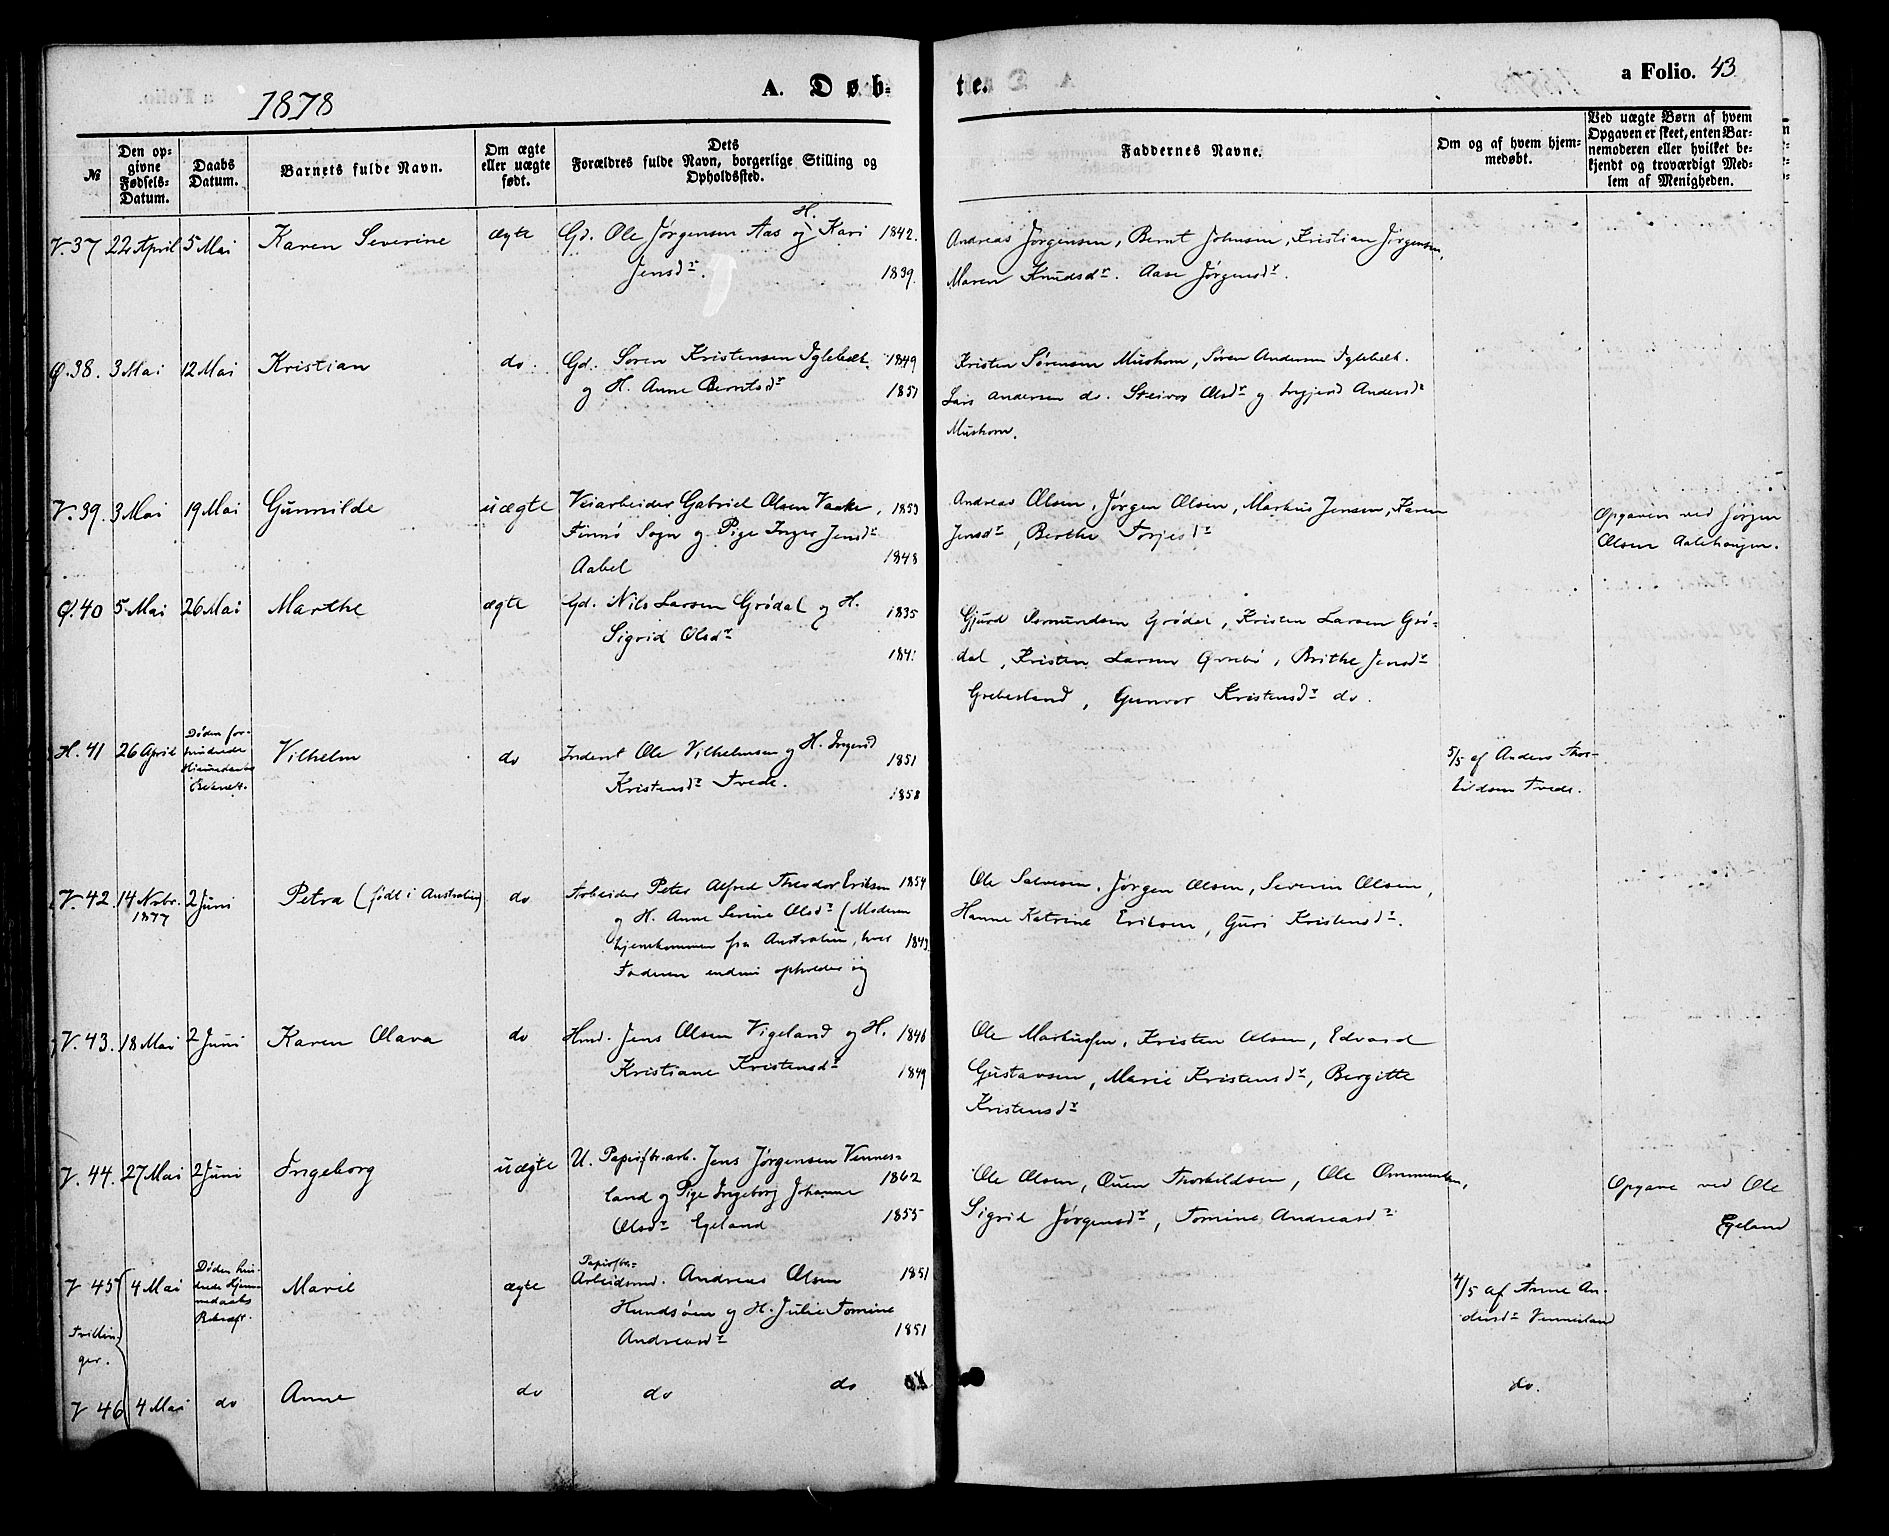 1878
A. Døb-
te.
a Folio. 43
№
Den op-
givne
Fødsels-
Datum.
Daabs
Datum.
Barnets fulde Navn.
Om ægte
eller uægte
født.
Dets
Forældres fulde Navn, borgerlige Stilling og
Opholdssted.
Faddernes Navne.
Om og af hvem hjem-
medøbt.
Ved uægte Børn af hvem
Opgaven er skeet, enten Bar-
nemoderen eller hvilket be-
kjendt og troværdigt Med-
lem af Menigheden.
V. 37 22 April 5 Mai Karen Severine ægte Gd. Ole Jørgensen Aas og H. Kari 1842.
Jensdr. 1839.
Andreas Jørgensen, Bernt Johnsen, Kristian Jørgensen,
Maren Knudsdr. Aase Jørgensdr.
Ø. 38. 3 Mai 12 Mai Kristian do. Gd. Søren Kristensen Iglebæk 1849
og H. Anne Berntsdr 1851
Kristen Sørensen Mushom, Søren Andersen Iglebæk.
Lars Andersen do. Steivor Olsdr og Ingjerd Andersdr
Mushom.
V. 39. 3 Mai 19 Mai Gunnilde uægte Veiarbeider Gabriel Olsen Vaake, 1853
Finnø Sogn og Pige Inger Jensdr
Aabel 1848
Andreas Olsen, Jørgen Olsen, Markus Jensen, Karen
Jensdr, Berthe Torjesdr
Opgaven ved Jørgen
Olsen Aalehougen.
Ø. 40 5 Mai 26 Mai Marthe ægte Gd. Nils Larsen Grødal og H. 1835
Sigrid Olsdr 184
Gjurd Asmundsen Grødal, Kristen Larsen Grø-
dal, Kristen Larsen, Brithe Jensdr
Grebesland, Gunvor Kristensdr do.
H. 41 26 April Døden for-
hindrede
Vilhelm do Inderst Ole Vilhelmsen og H. Ingerd 1851
Kristensdr Tvede. 1858
5/5 af Anders Thor-
kildsen Tvede.
V. 42. 14 Nvbr. 2 Juni Petra (født i Australien) do Arbeider Peter Alfred Theodor Eriksen 1854
1877
og H. Anne Serine Olsdr (Moderen
hjemkommen fra Australien, hvor 1843.
Faderen endnu opholder sig
Ole Salvesen, Jørgen Olsen, Severin Olsen,
Hanne Katrine Eriksen, Guri Kristensdr.
V. 43. 18 Mai 2 Juni Karen Olava do Hmd. Jens Olsen Vigeland og H. 1846
Kristiane Kristensdr 1849
Ole Markussen, Kristen Olsen, Edvard
Gustavsen, Marie Kristensdr, Bergitte
Kristensdr
V. 44. 27 Mai 2 Juni Ingeborg uægte U. Papirfbr.arb. Jens Jørgensen Vennes-
land og Pige Ingeborg Johanne 1862
Olsdr Egeland 1855
Ole Olsen, Ouen Thorkildsen, Ole Ommundsen,
Sigrid Jørgensdr, Tomine Andreasdr
Opgave ved Ole
Egeland
V 45 4 Mai Døden hin-
drede Hjem-
medaabs
Bekræft.
Marie ægte Papirfbr.
Arbeidsmd. Andreas Olsen 1851
Hundsøen og H. Julie Tomine
Andreasdr 1851
4/5 af Anne An-
dersdr Vennesland
Tvillin-
ger.
V 46 4 Mai do Anne do do do do.